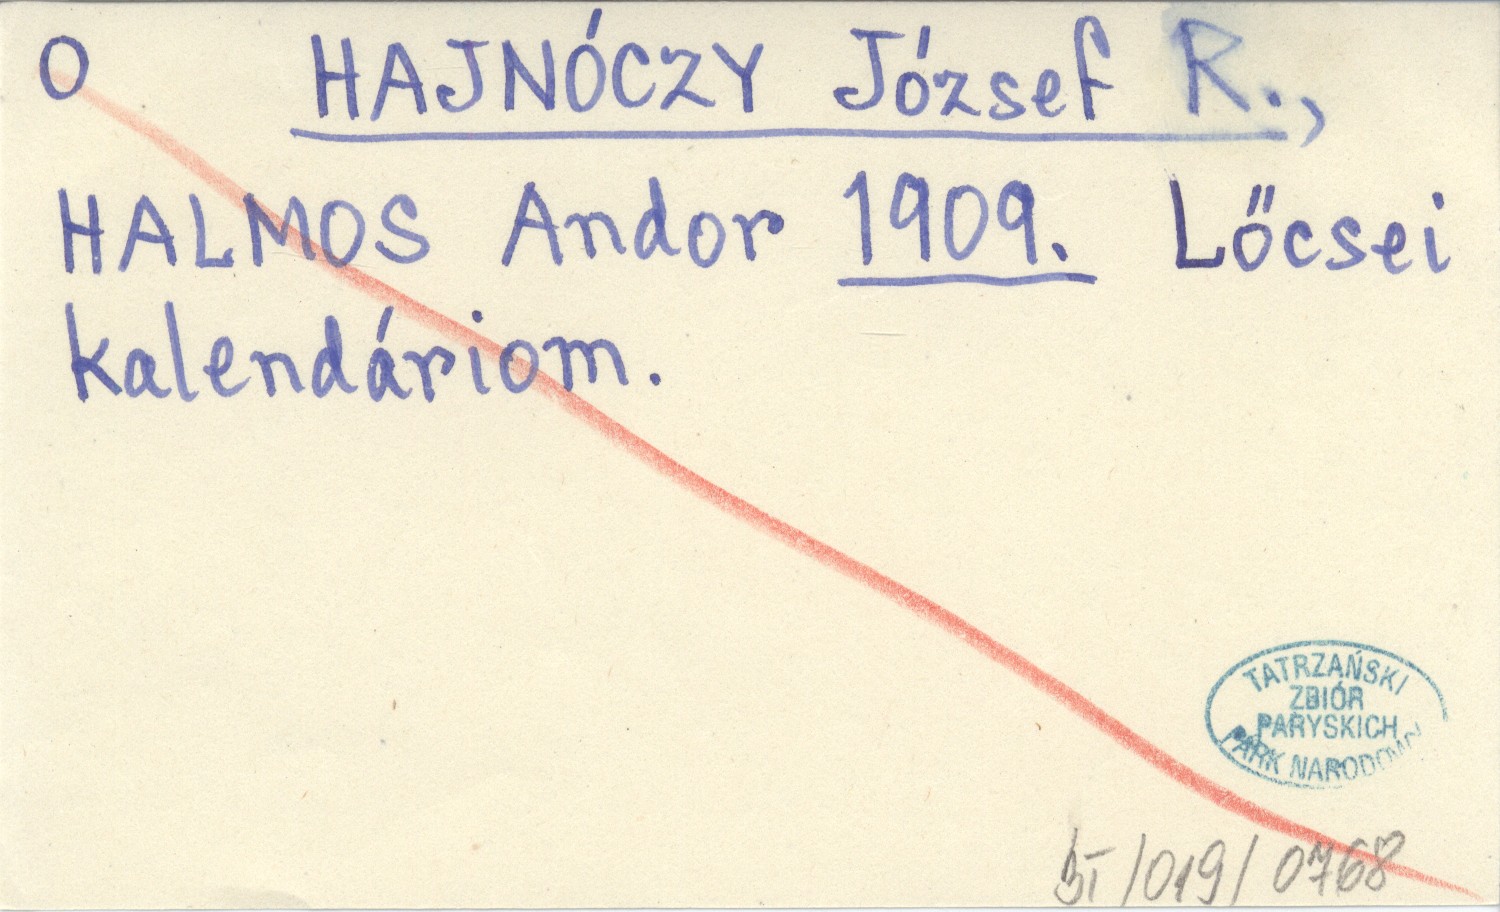 O HAJNÓCZY József R.,
HALMOS Andor 1909. Lőcsei
kalendáriom.
TATRZAŃSKI
ZBIÓR
PARYSKICH
PARK NARODOWY
BT/019/0768